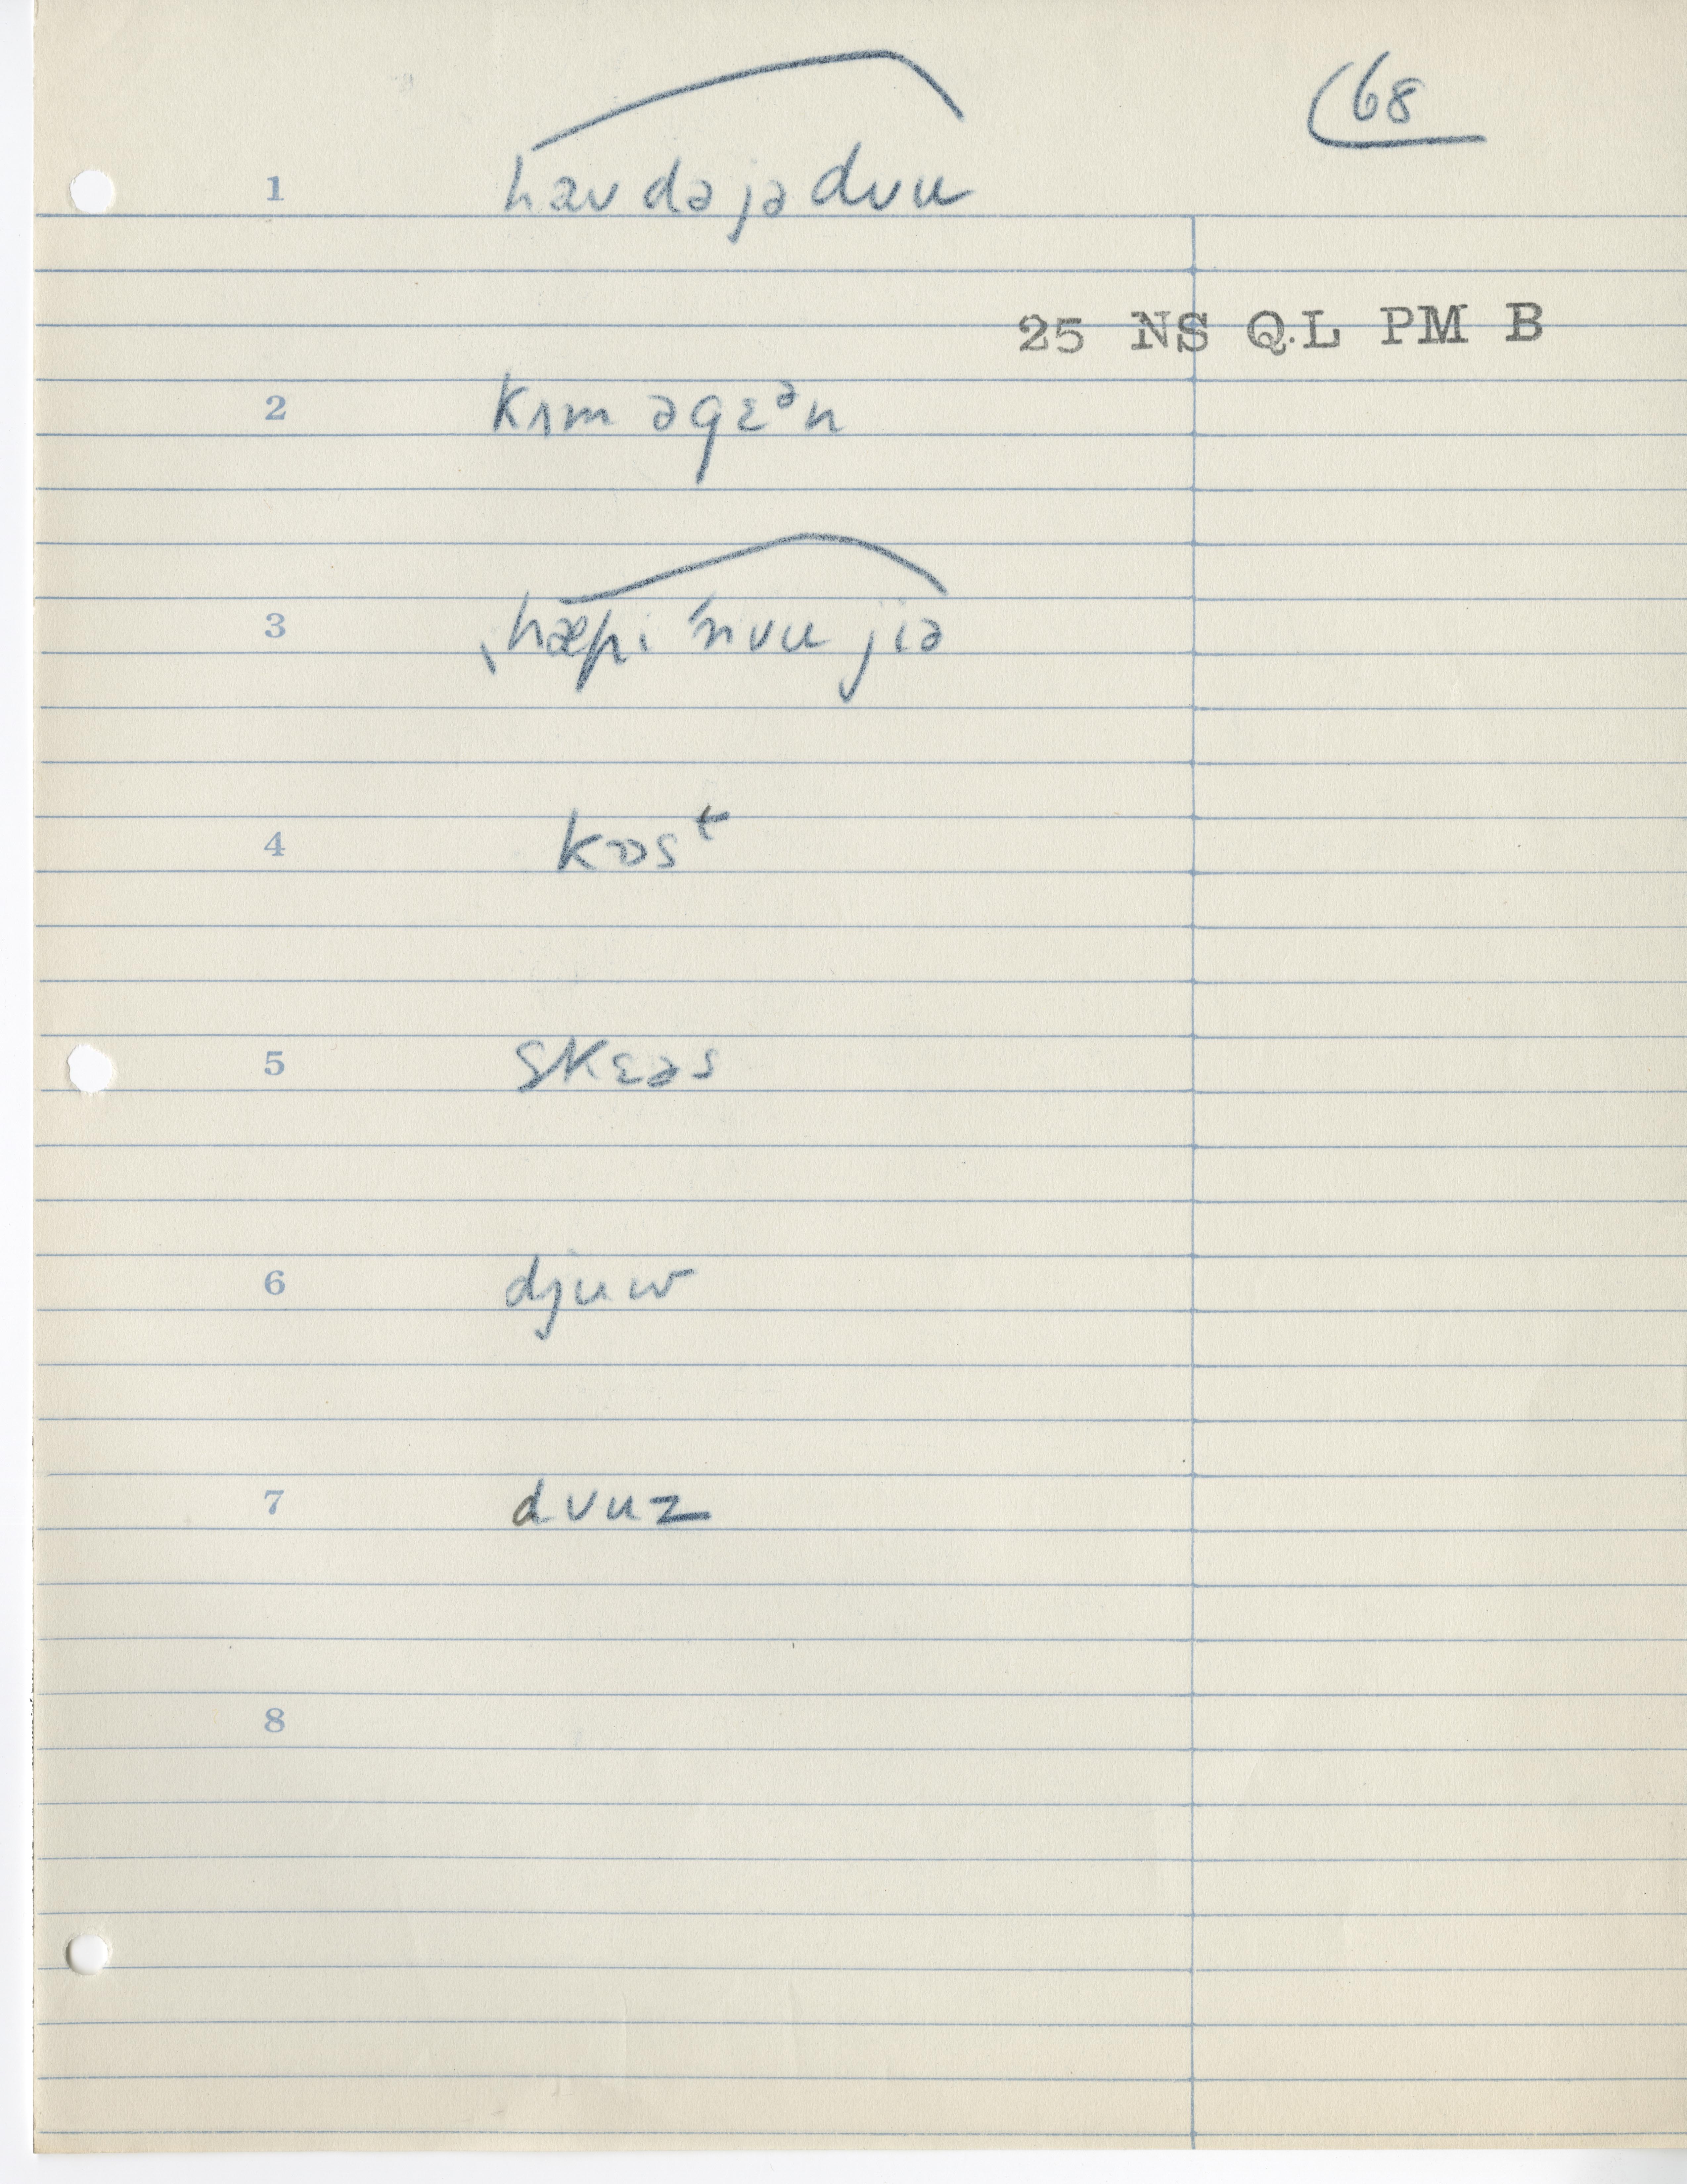 68
1 haʊ də jə dʊu
25 NS Q.L PM B
2 kʌm əgɛᵊn
3 ˌhæpi ˈnʊu jiə
4 kɒsᵗ
5 skɛəs
6 djuw
7 dʊuz
8